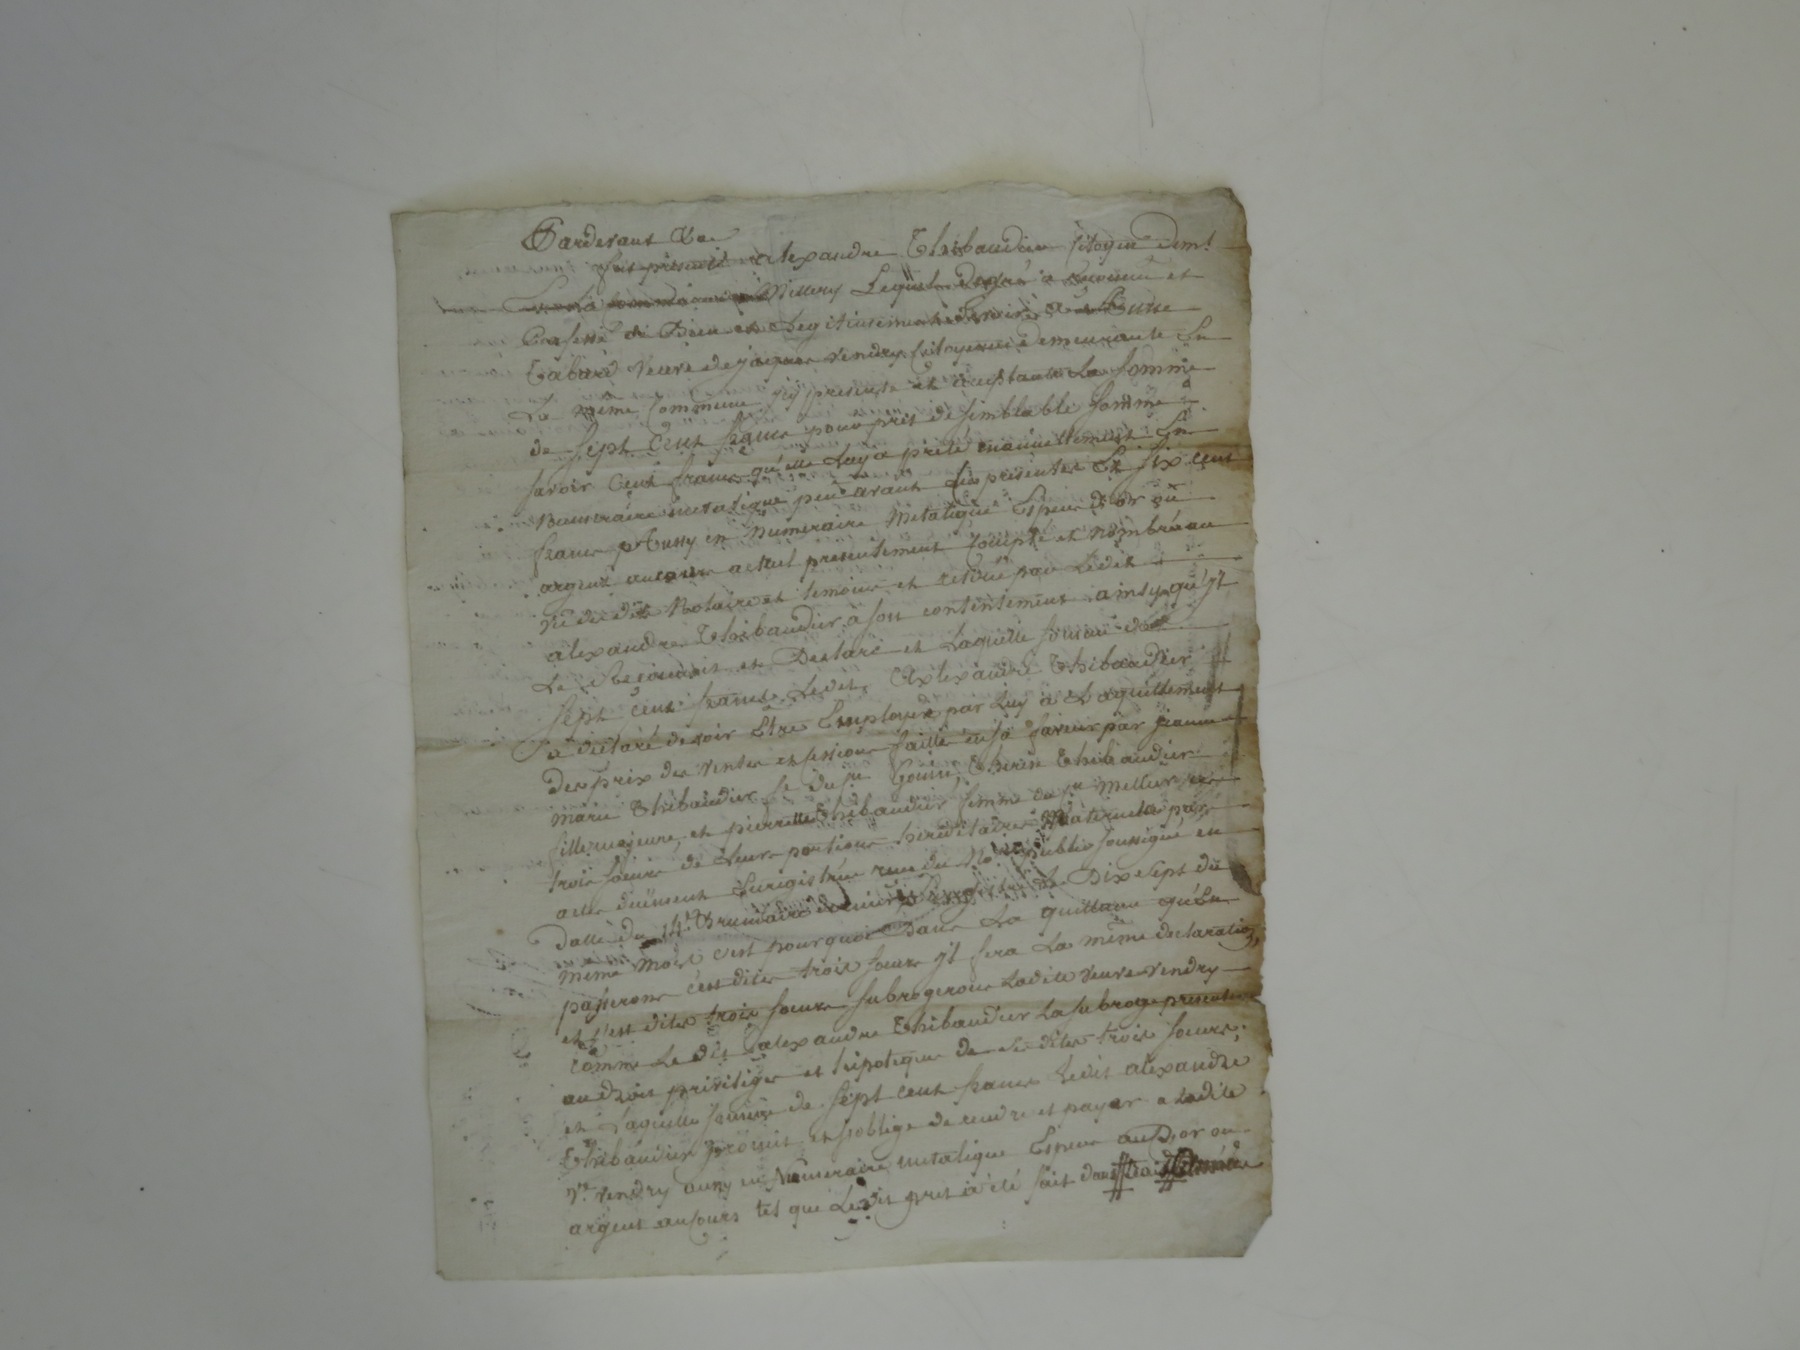 Pardevant &a
fut présent alexandre Thibaudier Citoyen demt
Millery Lequel de gré a reconnu et
Confessé de Bien et Legitimement devoir a
Tabard Veuve de jacques Vendry Citoyenne demeurante En
La même Commune icy presente et acceptante La somme
de sept Cent francs pour pret de semblable somme
savoir Cent francs qu'elle luy a prêté manuellement En
Numeraire metalique peu avant ces presentes Et six cent
francs Aussy en Numeraire Metalique Espece d'or ou
argent au cours actuel presentement Compté et Nombré au
Vû du dit Notaire et temoins et retiré par Ledit
alexandre Thibaudier à son contentement ainsy qu'yl
Le Reconnoit et Declare et Laquelle somme de
sept cent francs Ledit Alexandre Thibaudier
a declaré devoir Etre Employée par Luy a L'aquittement
des prix des ventes et cessions faitte en sa faveur par jeanne
marie Thibaudier fe du sr Thibaudier
fille majeure, et pierrette Thibaudier femme du sr
trois soeurs de Leurs portions héréditaires Maternelle par
acte duement Enregistrée reçu du No re public soussigné en
datte du 14 Brumaire dernier Enregistré Le Dix sept du
même mois c'est pourquoi Dans La quittance qu'En
passerons cesdites trois soeurs yl fera La même declaration,
et cesdites trois soeurs subrogerons Ladite veuve vendry
comme Le dit alexandre Thibaudier La subroge presentement
au droit priviliges et hipoteque de se dites trois soeurs;
et Laquelle somme de sept cent francs Ledit alexandre
Thibaudier promit et s'oblige de rendre et payer a Ladite
Ve Vendry aussy en Numeraire metalique Espece au D'or ou
argent au cours tel que Ledit pret a été fait dans